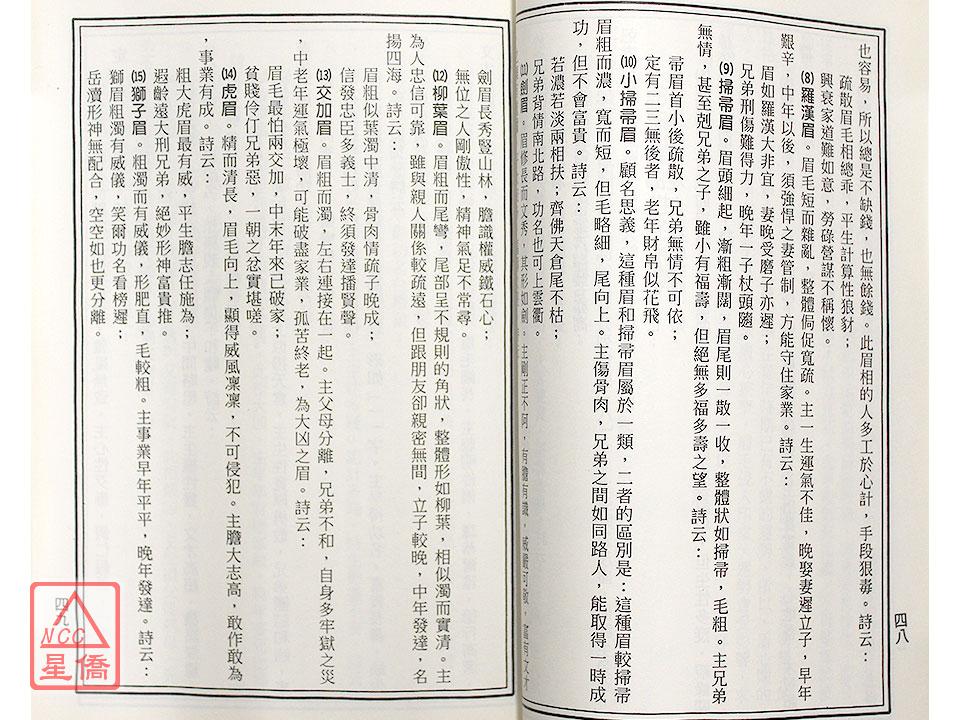 也容易，所以總是不缺錢，也無餘錢。此眉相的人多工於心計，手段狠毒。詩云：
疏散眉毛相總乖，平生計算性狼豺；
興衰家道難如意，勞碌營謀不稱懷。
⑻羅漢眉。眉毛短而雜亂，整體侷促寬疏。主一生運氣不佳，晚娶妻遲立子，早年
艱辛，中年以後，須強悍之妻管制，方能守住家業。詩云：
眉如羅漢大非宜，妻晚受磨子亦遲；
兄弟刑傷難得力，晚年一子杖頭隨。
⑼掃帚眉。眉頭細起，漸粗漸闊，眉尾則一散一收，整體狀如掃帚，毛粗。主兄弟
無情，甚至剋兄弟之子，雖小有福壽，但絕無多福多壽之望。詩云：
帚眉首小後疏散，兄弟無情不可依；
定有一二無後者，老年財帛似花飛。
⑽小掃帚眉。顧名思義，這種眉和掃帚眉屬於一類，二者的區別是：這種眉較掃帚
眉粗而濃，寬而短，但毛略細，尾向上。主傷骨肉，兄弟之間如同路人，能取得一時成
功，但不會富貴。詩云：
若濃若淡兩相扶；齊佛天倉尾不枯；
兄弟背情南北路，功名也可上雲衢。
⑾劍眉。眉修長而文秀，其形如劍。主剛正不阿，有膽有識，威嚴可敬，富有文才
四八
劍眉長秀豎山林，膽識權威鐵石心；
無位之人剛傲性，精神氣足不常尋。
⑿柳葉眉。眉粗而尾彎，尾部呈不規則的角狀，整體形如柳葉，相似濁而實清。主
為人忠信可靠，雖與親人關係較疏遠，但跟朋友卻親密無間，立子較晚，中年發達，名
揚四海。詩云：
眉粗似葉濁中清，骨肉情疏子晚成；
信發忠臣多義士，終須發達播賢聲。
⒀交加眉。眉粗而濁，左右連接在一起。主父母分離，兄弟不和，自身多牢獄之災
，中老年運氣極壞，可能破盡家業，孤苦終老，為大凶之眉。詩云：
眉毛最怕兩交加，中末年來已破家；
貧賤伶仃兄弟惡，一朝之忿實堪嗟。
⒁虎眉。精而清長，眉毛向上，顯得威風凜凜，不可侵犯。主膽大志高，敢作敢為
，事業有成。詩云：
粗大虎眉最有威，平生膽志任施為；
遐齡遠大刑兄弟，絕妙形神富貴推。
⒂獅子眉。粗濁而有威儀，形肥直，毛較粗。主事業早年平平，晚年發達。詩云：
獅眉粗濁有威儀，笑爾功名看榜遲；
岳瀆形神無配合，空空如也更分離。
四九
NCC
星僑